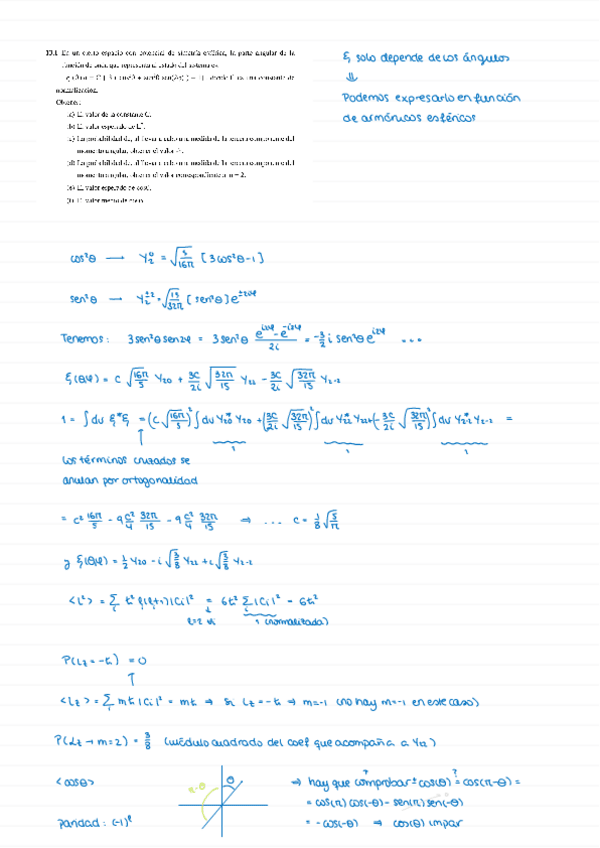 10.1 En un cierto espacio con potencial de simetría esférica, la parte angular de la
función de onda que representa el estado del sistema es
normalización.
Obtener:
(a) El valor de la constante C.
(b) El valor esperado de L².
(c) La probabilidad de, al llevar a cabo una medida de la tercera componente del
momento angular, obtener el valor
(d) La probabilidad de, al llevar a cabo una medida de la tercera componente del
momento angular, obtener el valor correspondiente a m = 2.
(e) El valor esperado de cosθ.
ξ solo depende de los ángulos
⇓
Podemos expresarlo en función
de armónicos esféricos
cos²θ → Y₂⁰ = √(5/16π) [3cos²θ-1]
sen²θ → Y₂^±2 = √(15/32π) [sen²θ] e^±2iφ
Tenemos: 3sen²θsen2φ = 3sen²θ (e^i2φ - e^-i2φ)/2i = -3/2 i sen²θ e^i2φ ...
ξ(θφ) = C √(16π/5) Y₂₀ + 3C/2i √(32π/15) Y₂₂ - 3C/2i √(32π/15) Y₂₋₂
1 = ∫dν ξ*ξ = (C √(16π/5))² ∫dν Y₂₀* Y₂₀ + (3C/2i √(32π/15))² ∫dν Y₂₂* Y₂₂ + (-3C/2i √(32π/15))² ∫dν Y₂₋₂* Y₂₋₂ =
↑ 1 1 1
Los términos cruzados se
anulan por ortogonalidad
= C² 16π/5 - 9 C²/4 32π/15 - 9 C²/4 32π/15 ⇒ ... C = 1/8 √(5/π)
y ξ(θφ) = 1/2 Y₂₀ - i √(3/8) Y₂₂ + i √(3/8) Y₂₋₂
<L²> = Σ ħ² ℓ(ℓ+1)|Ci|² = 6ħ² Σ|Ci|² = 6ħ²
ℓ=2 ∀i 1 (normalizada)
P(Lz = -ħ) = 0
↑
<Lz> = Σ mħ|Ci|² = mħ ⇒ Si Lz = -ħ ⇒ m=-1 (no hay m=-1 en este caso)
P(Lz → m=2) = 3/8 (módulo cuadrado del coef que acompaña a Y₂₂)
<cosθ> π-θ θ ⇒ hay que comprobar ± cos(θ) ?= cos(π-θ) =
= cos(π) cos(-θ) - sen(π) sen(-θ)
paridad: (-1)^ℓ = -cos(-θ) ⇒ cos(θ) impar